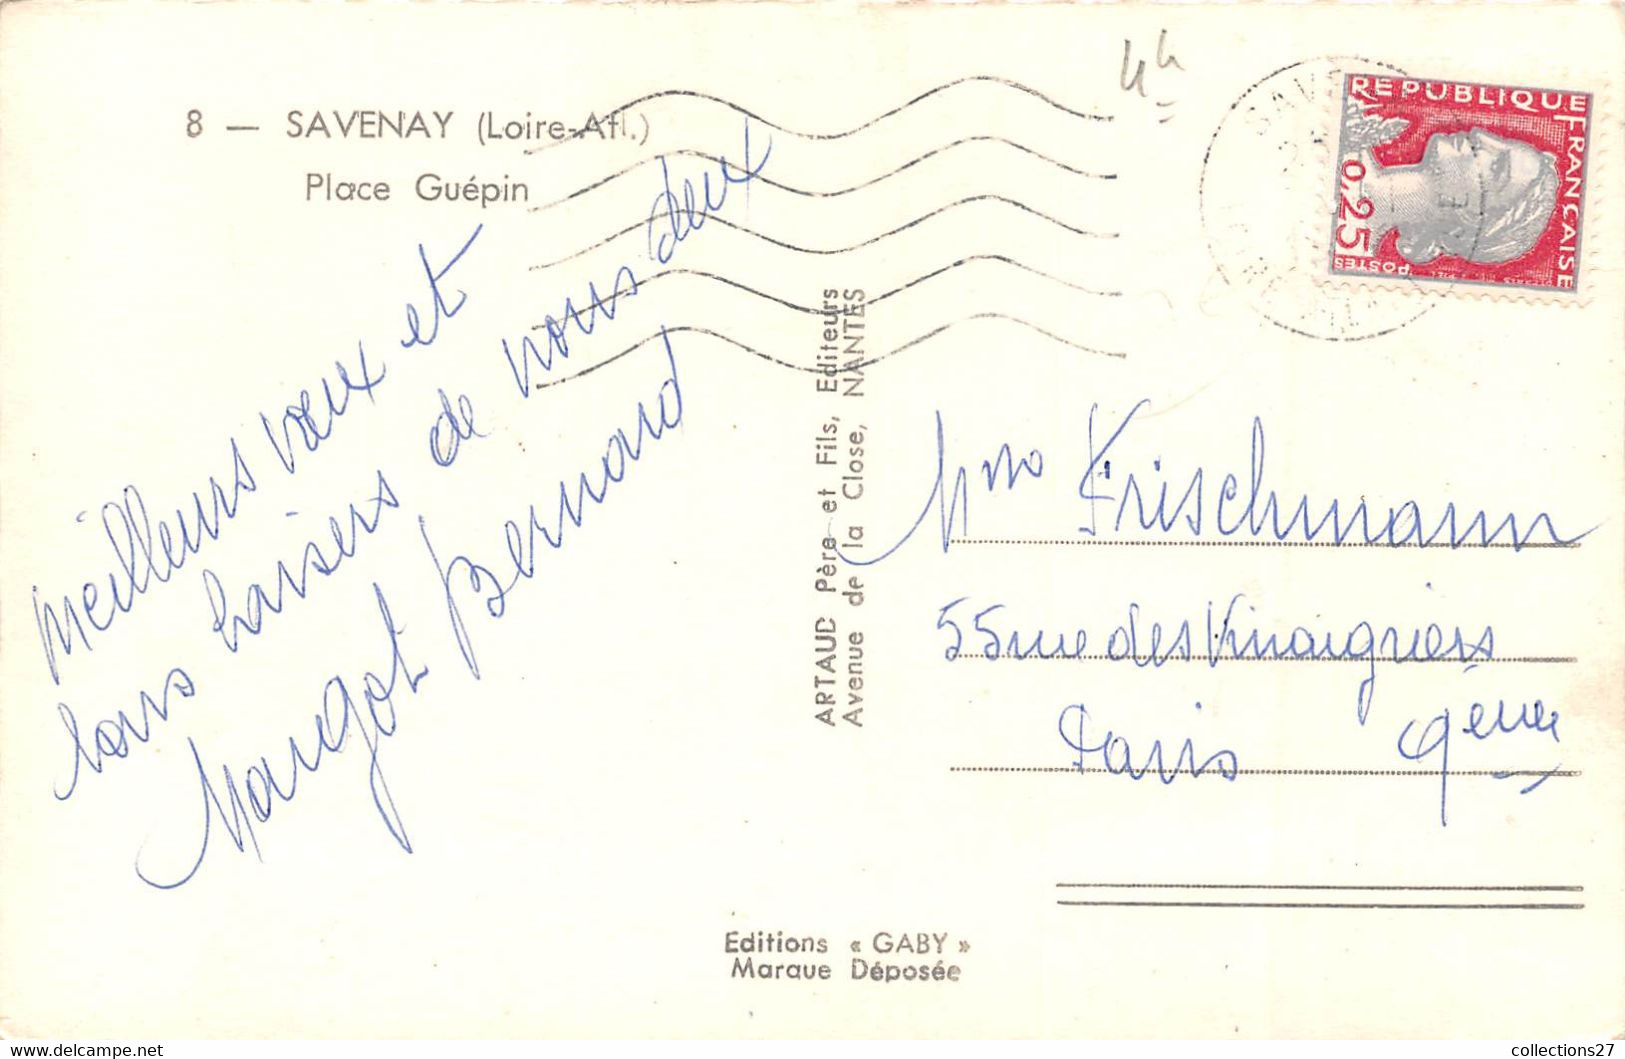 8 — SAVENAY (Loire-Atl.)
Place Guépin
meilleurs vœux et
bons baisers de nous deux
Margot Bernard
ARTAUD Père et Fils, Editeurs
Avenue de la Close, NANTES
REPUBLIQUE
FRANÇAISE
0,25
POSTES
SAVENAY
Mme Frischmann
55 rue des Vinaigriers
Paris 9ème
Editions « GABY »
Marque Déposée
collections27